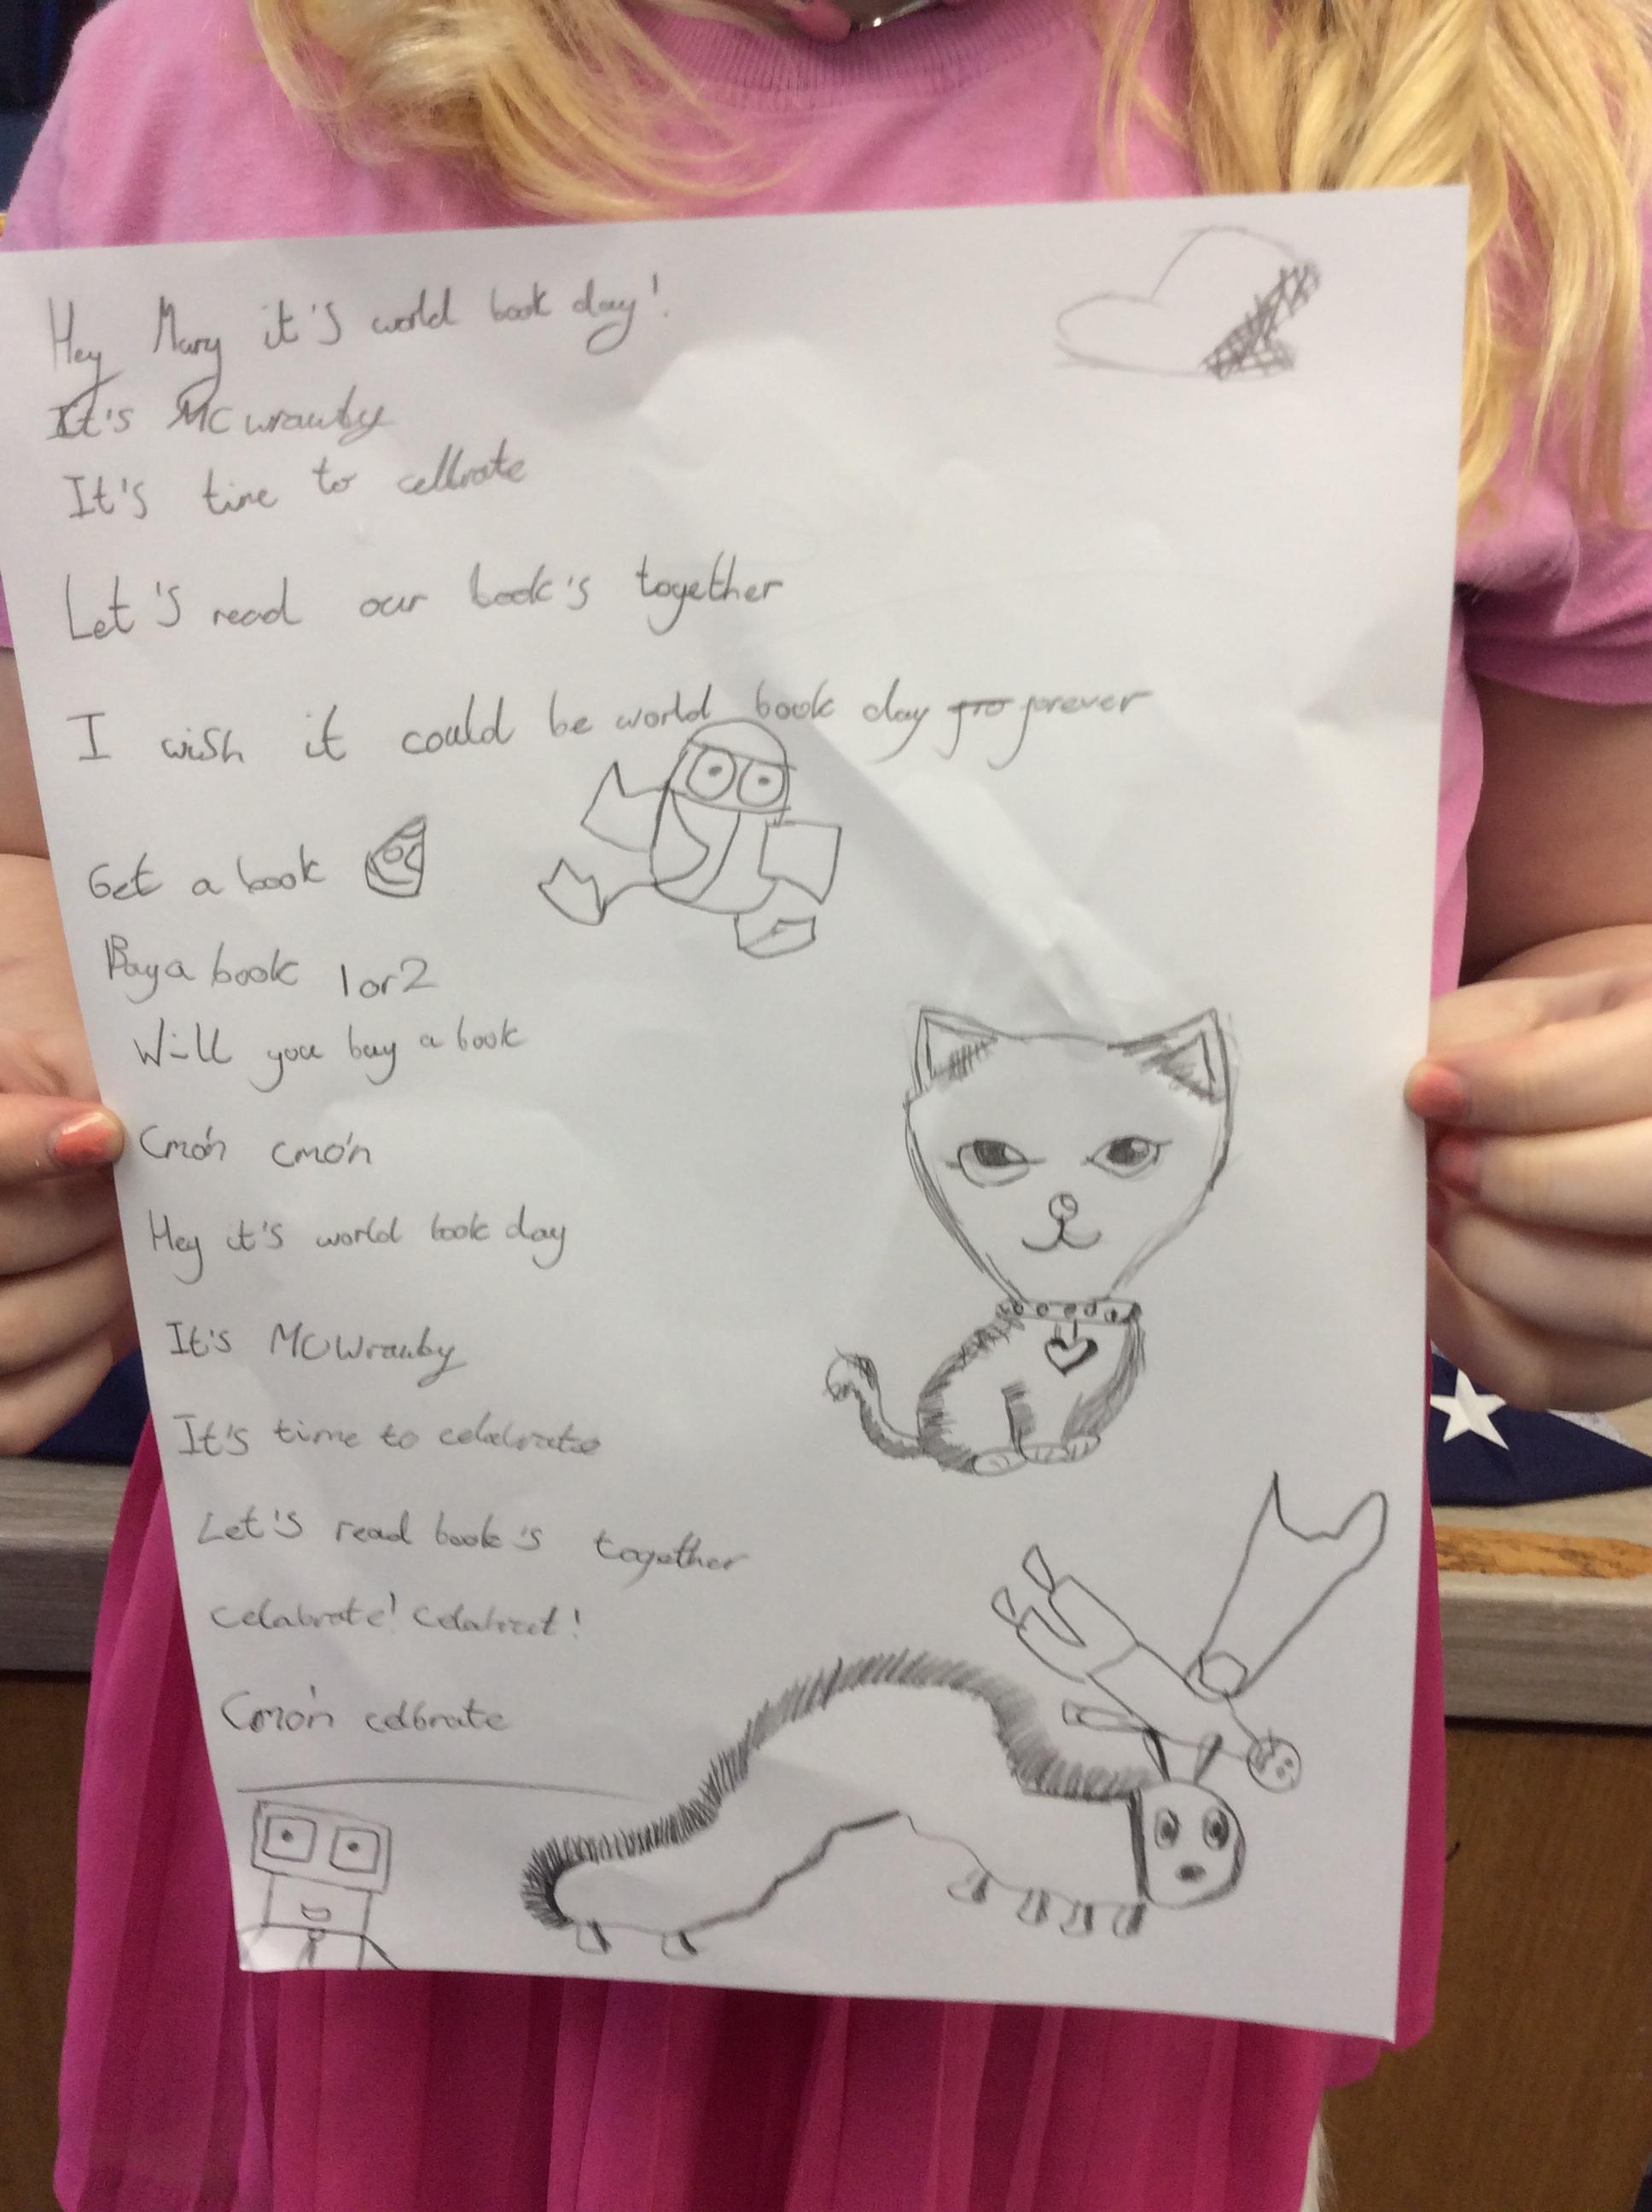 Hey Mary it's world book day!
It's MC wrauby
It's time to cellbrate
Let's read our book's together
I wish it could be world book day forever
Get a book
Buy a book 1 or 2
Will you buy a book
Cmo'n cmo'n
Hey it's world book day
It's MCWrauby
It's time to celabrate
Let's read book's together
celabrate! Celabrat!
Cmo'n celbrate